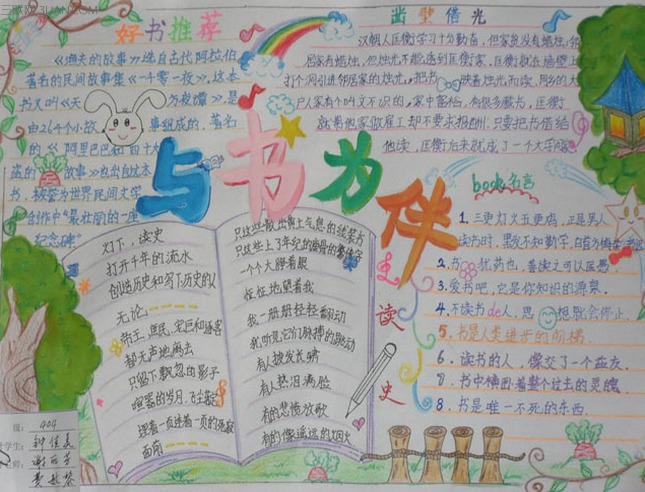 好书推荐
《渔夫的故事》选自古代阿拉伯
著名的民间故事集《一千零一夜》,这本
书又叫《天方夜谭》,是
由264个小故事组成的,著名
的《阿里巴巴和四十大
盗的故事》也出自这本
书,被誉为世界民间文学
创作中"最壮丽的一座
纪念碑"
凿壁借光
汉朝人匡衡学习十分勤奋,但家贫没有蜡烛,邻
居家有蜡烛,但烛光不能透到匡衡家,匡衡就在墙壁上
打个洞引进邻居家的烛光,把书映着烛光而读,同乡的大
户人家有个叫文不识的,家中富裕,有很多藏书,匡衡
就着他家做雇工却不要求报酬.只要把书借给
他读,匡衡后来就成了一个大学
与书为伴
book名言
1.三更灯火五更鸡,正是男人
读书时,黑发不知勤学,白首方悔
2.书犹药也,善读之可以医愚
3.爱书吧,它是你知识的源泉.
4.不读书de人,思想就会停止.
5.书是人类进步的阶梯.
6.读书的人,像交了一个益友.
8.书中横卧着整个过去的灵魂
8.书是唯一不死的东西.
读史
灯下,读史
打开千年的流水
创造历史和写下历史的人
无论
帝王、庶民、宠臣和逐客
都无声地离去
只留下飘忽的影子
喧嚣的岁月,
踩着一页连着一页的
西南
只这些
只这些上了年纪的
一个个瞪着眼
怔怔地望着我
我一册册轻轻翻动
我听见它们脉搏的跳动
有人披发长啸
有人热泪满脸
有的悲愤放歌
有的像遥远的烟火
级: 404
学生: 钟佳